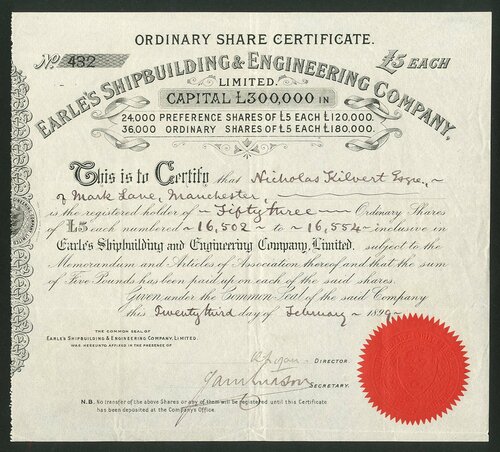 ORDINARY SHARE CERTIFICATE.
No. 432
£5 EACH
EARLE'S SHIPBUILDING & ENGINEERING COMPANY,
LIMITED.
CAPITAL £300,000 IN
24,000 PREFERENCE SHARES OF £5 EACH £120,000.
36,000 ORDINARY SHARES OF £5 EACH £180,000.
This is to Certify that Nicholas Kilvert Esqre.,
of Mark Lane, Manchester,
is the registered holder of ~ Fifty three ~ Ordinary Shares
of £5 each numbered ~ 16,502 ~ to ~ 16,554 ~ inclusive in
Earle's Shipbuilding and Engineering Company, Limited. subject to the
Memorandum and Articles of Association thereof and that the sum
of Five Pounds has been paid up on each of the said shares.
Given under the Common Seal of the said Company
this Twenty third day of February ~ 1899 ~
THE COMMON SEAL OF
EARLE'S SHIPBUILDING & ENGINEERING COMPANY, LIMITED.
WAS HEREUNTO AFFIXED IN THE PRESENCE OF
DIRECTOR.
SECRETARY.
N.B. No transfer of the above Shares or any of them will be registered until this Certificate
has been deposited at the Company's Office.